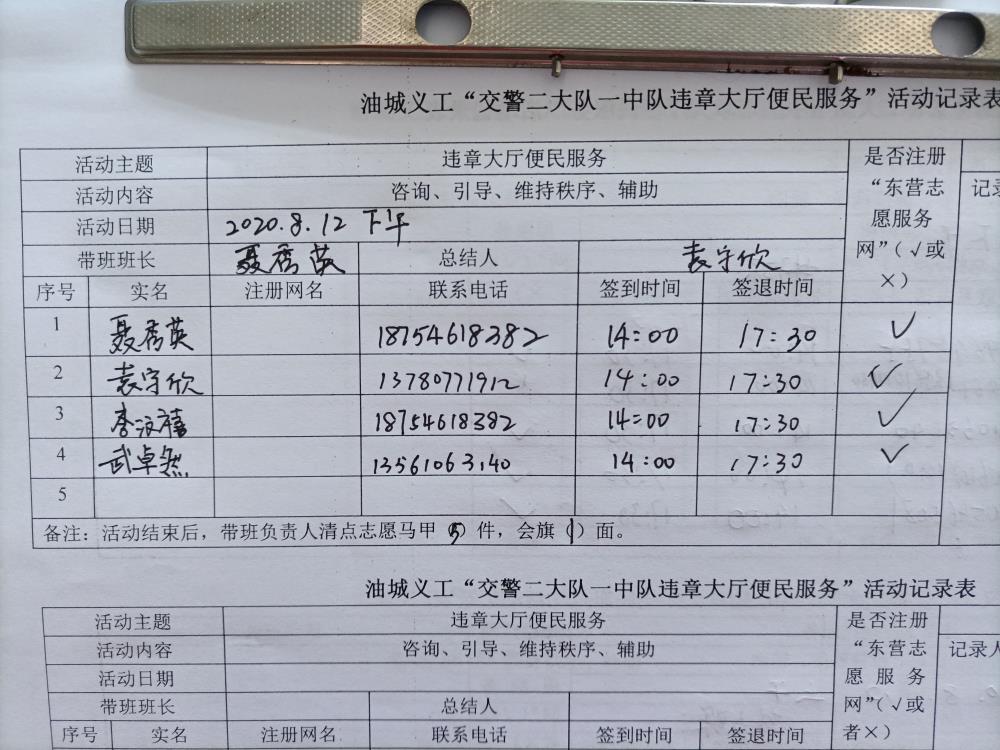 油城义工“交警二大队一中队违章大厅便民服务”活动记录表
活动主题 违章大厅便民服务 是否注册“东营志愿服务网”(√或×)
活动内容 咨询、引导、维持秩序、辅助 记录
活动日期 2020.8.12 下午
带班班长 聂秀英 总结人 袁守欣
序号 实名 注册网名 联系电话 签到时间 签退时间
1 聂秀英 18754618382 14:00 17:30 ✓
2 袁守欣 13780771912 14:00 17:30 ✓
3 李汶禧 18754618382 14:00 17:30 ✓
4 武卓然 13561063140 14:00 17:30 ✓
5
备注：活动结束后，带班负责人清点志愿马甲（5）件，会旗（1）面。
油城义工“交警二大队一中队违章大厅便民服务”活动记录表
活动主题 违章大厅便民服务 是否注册“东营志愿服务网”(√或者×)
活动内容 咨询、引导、维持秩序、辅助 记录人
活动日期
带班班长 总结人
序号 实名 注册网名 联系电话 签到时间 签退时间